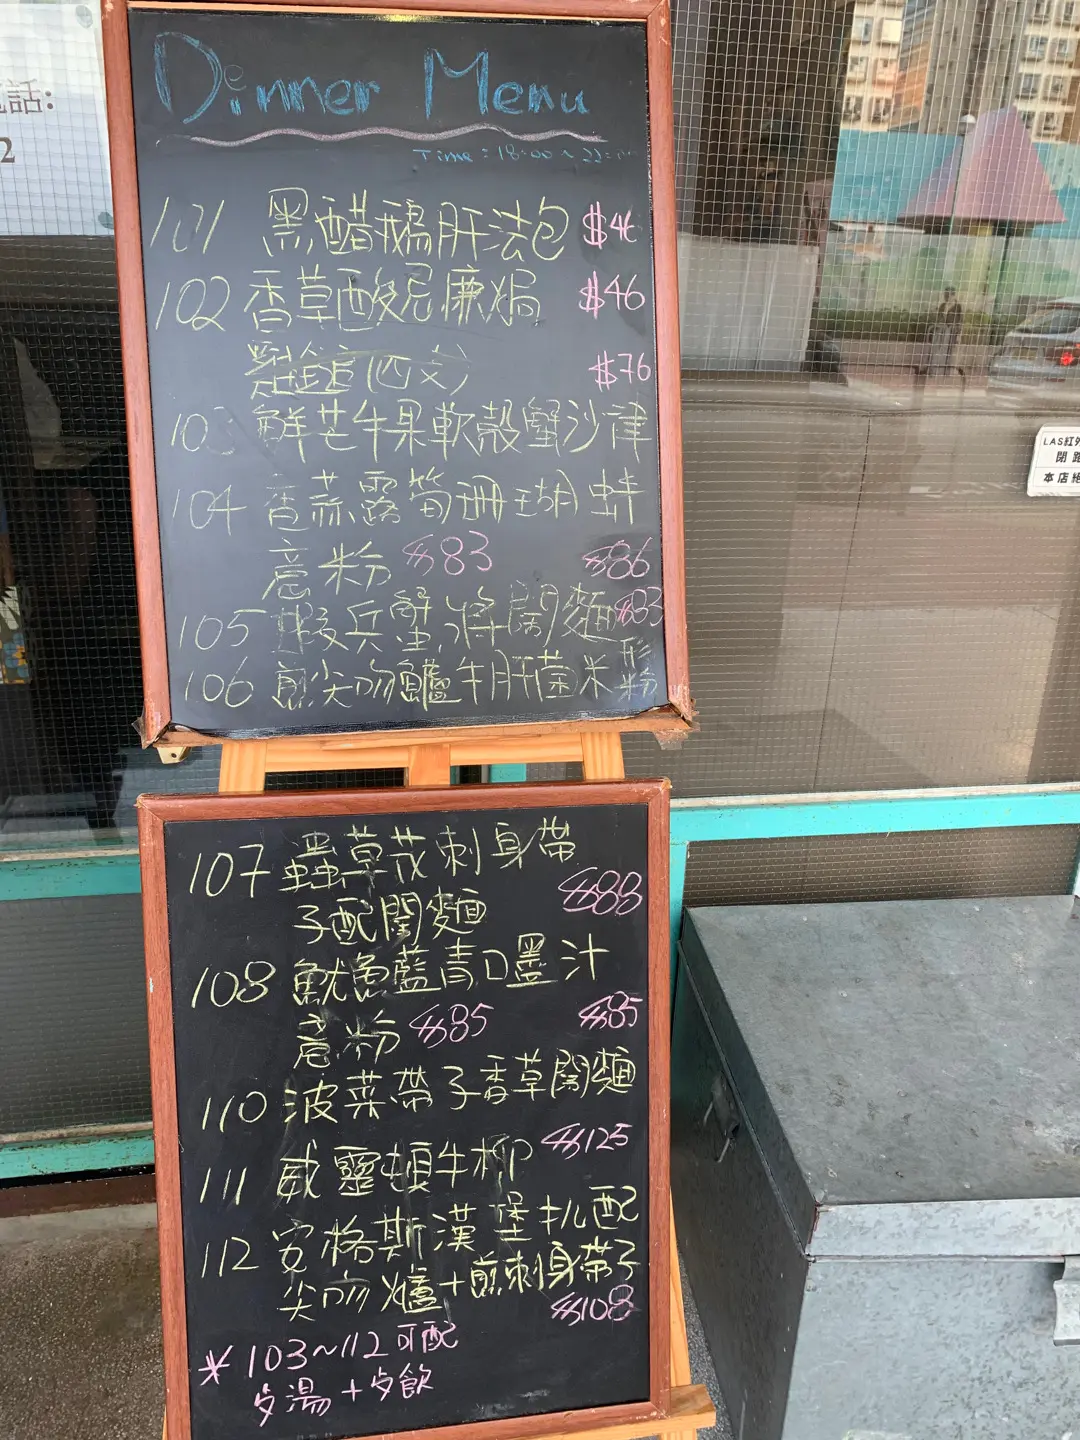 話:
2
Dinner Menu
Time = 18:00~22:
101 黑醋鵝肝法包 $46
102 香草酸尼廉焗 $46
(四文) $76
103 鮮芒牛果軟殼蟹沙律
104 香蒜露筍珊瑚蚌
意粉 $83 $86
105 蝦兵蟹將闊麵 $83
106 煎尖吻鱸牛肝菌米形粉
107 蟲草茂刺身帶
子配闊麵 $88
108 魷魚藍青口墨汁
意粉 $85 $85
110 波菜帶子香草闊麵
111 威靈頓牛柳 $125
112 安格斯漢堡扒配
尖吻爐+煎刺身帶子
$108
* 103~112 可配
歺湯+歺飲
LAS紅外
閉路
本店絕